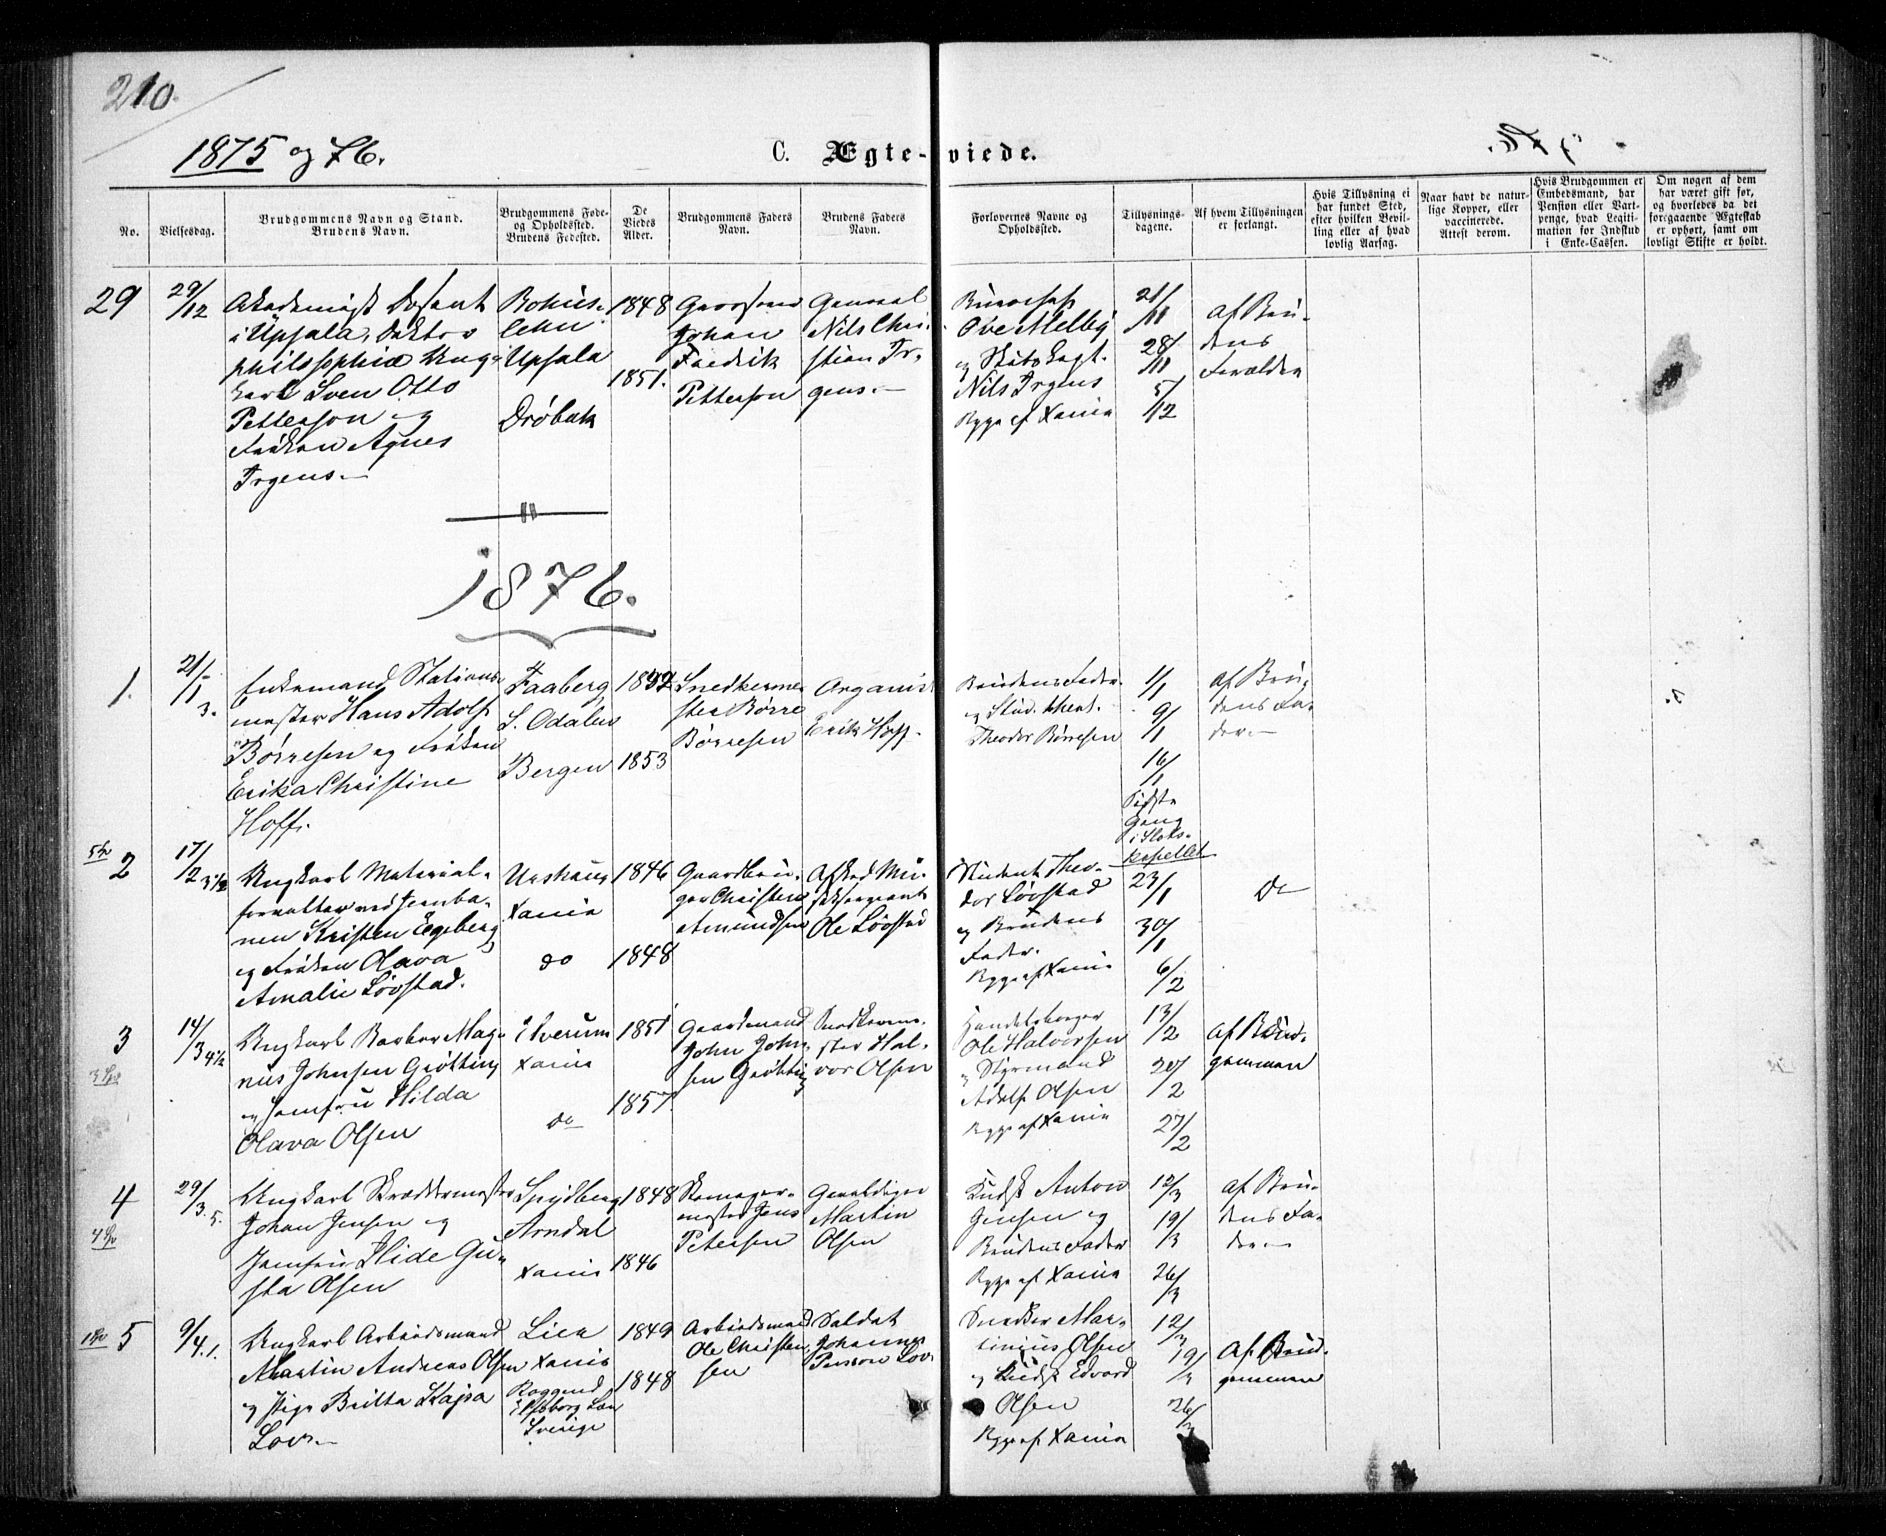 210.
1875 og 76.
C. Ægte-viede.
No.
Vielsesdag.
Brudgommens Navn og Stand.
Brudens Navn.
Brudgommens Føde-
og Opholdssted.
Brudens Fødested.
De
Viedes
Alder.
Brudgommens Faders
Navn.
Brudens Faders
Navn.
Forlovernes Navne og
Opholdssted.
Tillysnings-
dagene.
Af hvem Tillysningen
er forlangt.
Hvis Tillysning ei
har fundet Sted,
efter hvilken Bevil-
ling eller af hvad
lovlig Aarsag.
Naar havt de natur-
lige Kopper, eller
vaccinerede.
Attest derom.
Hvis Brudgommen er
Embedsmand, har
Pension eller Vart-
penge, hvad Legiti-
mation for Indskud
i Enke-Cassen.
Om nogen af dem
har været gift før,
og hvorledes da det
foregaaende Ægteskab
er ophørt, samt om
lovligt Skifte er holdt.
29
29/12
Akademisk Dosent
i Upsala, Doktor
philosophiæ Ung-
karl Sven Otto
Petterson og
Frøken Agnes
Irgens.—
Bohus-
lehn
Upsala
Drøbak
1848
1851.
Johan
Fredrik
Petterson
General
Nils Chri-
stian Ir-
gens.—
Ove Melby
og
Nils Irgens
Begge af Xania
21/11
28/11
5/12
af Bru-
dens
Forældre
1876.
1.
21/1
3.
Enkemand Stations-
mester Hans Adolf
Børresen og Frøken
Erika Christine
Hoff.
Faaberg
S. Odalen
Bergen
1853
Snedkerme-
ster Børre
Børresen
Organist
Erik Hoff.
Brudens Fader
og Stud.
Theodor Børresen
1/1
9/1
16/1
Sidste
Gang
i Slots-
kapellet
af Bru-
dens Fa-
der.—
5
2
17/2 5½
Ungkarl Material-
forvalter ved Jernba-
nen Kristen Egeberg
og Frøken Olava
Amalie Løvstad.
Urskaug
Xania
do
1846
1848
Gaardbru-
ger Christen
Amundsen
Afsked Mu-
siksergeant
Ole Løvstad
Student Theo-
dor Løvstad
og Brudens
Fader.
Begge af Xania
23/1
30/1
6/2
do
3
14/3 4½
3
Ungkarl Barber Mag-
nus Johnsen Grøtting
og Jomfru Hilda
Olava Olsen
Elverum
Xania
do
1851
1857.
Gaardmand
John John-
sen Grøtting
Snedkerme-
ster Hal-
vor Olsen
Handelsborger
Ole Halvorsen
og Styrmand
Adolf Olsen
Begge af Xania
13/2
20/2
27/2
af Brud-
gommen
4
29/3. 5.
4
Ungkarl Skræddermester
Johan Jensen og
Jomfru Hilde Gu-
sta Olsen
Spydberg
Arndal
Xania
1848
1846
Skomager-
mester Jens
Petersen
Martin
Olsen
Kudsk Anton
Jensen og
Brudens Fader
Begge af Xania
12/3
19/3
26/3
af Bru-
dens Fa-
der—
1
5
9/4. 1.
Ungkarl Arbeidsmand
Martin Andreas Olsen
og Pige Britta Kajsa
Lov.—
Lier
Xania
Elfsborg Len
Sverige
1849
1848
Arbeidsmand
Ole Christen-
sen
Soldat
Johannes
Person Lov
Snedker Mar-
tinius Olsen
og Kudsk Edvard
Olsen
Begge af Xania
12/3
19/3
26/3
Af Brud-
gommen